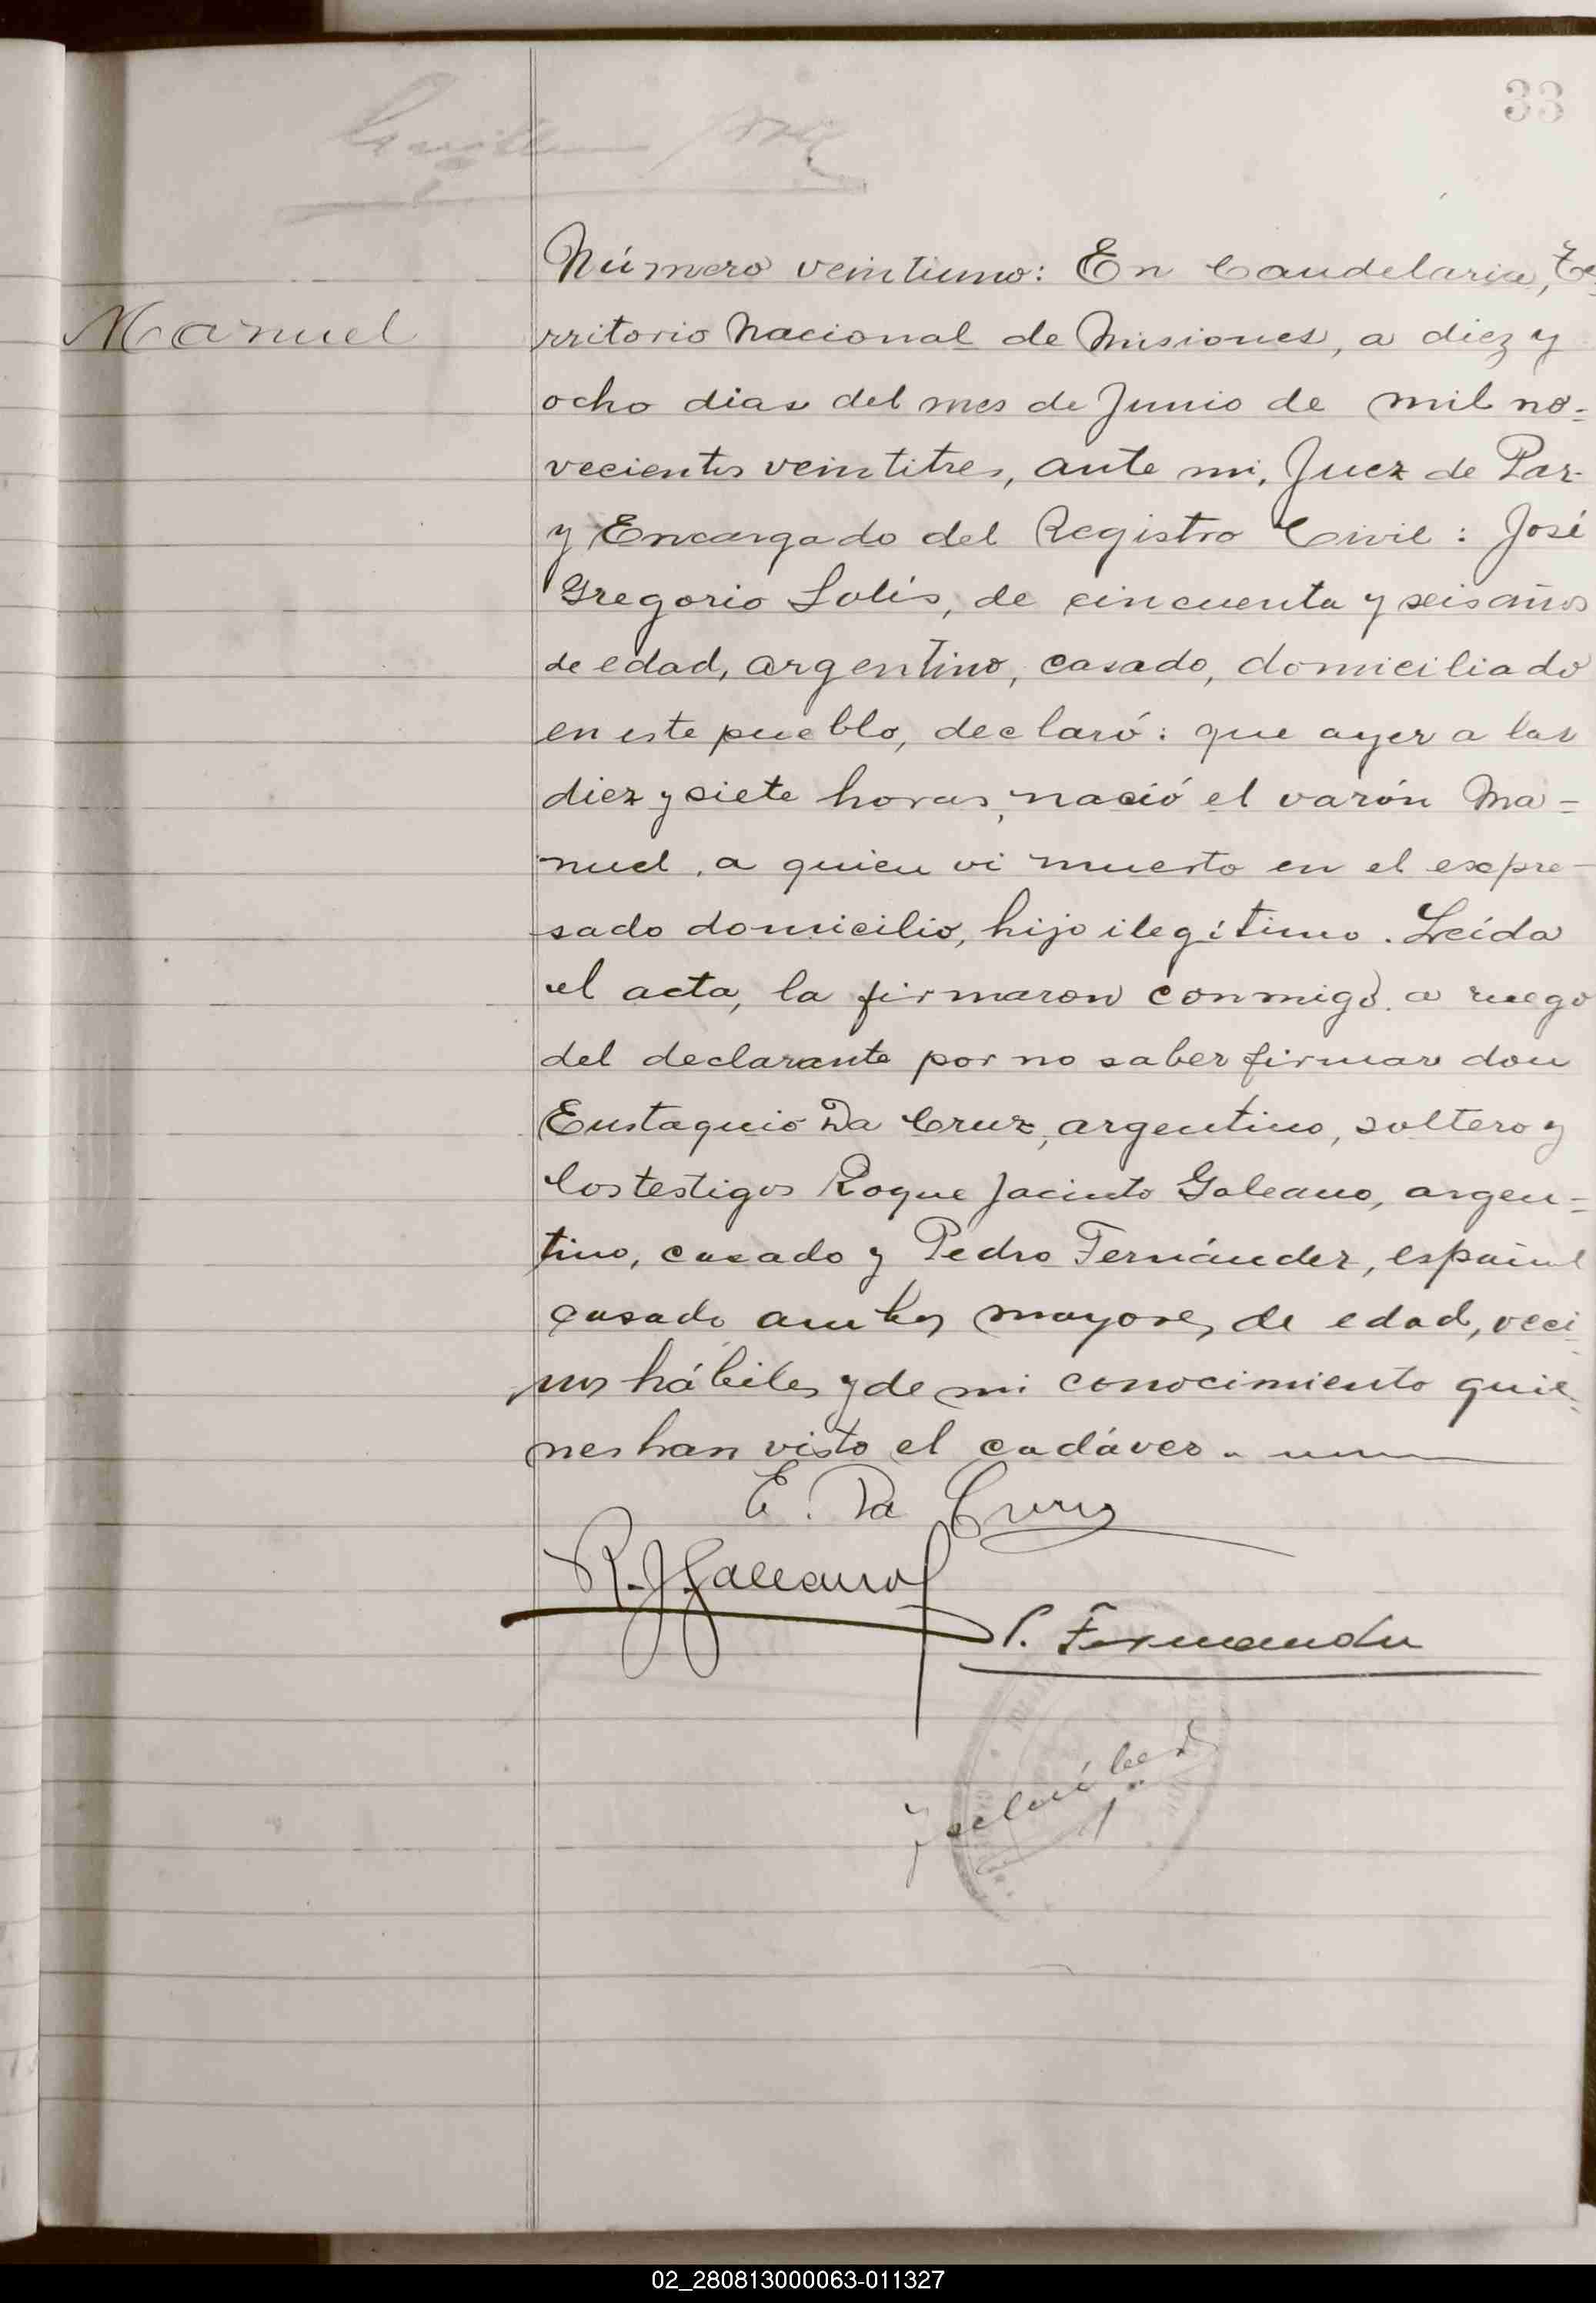 33
Número veintiuno: En Candelaria, Te-
Manuel
rritorio Nacional de Misiones, a diez y
ocho dias del mes de Junio de mil no-
vecientos veintitres, ante mi, Juez de Paz
y Encargado del Registro Civil: José
Gregorio Solis, de cincuenta y seis años
de edad, argentino, casado, domiciliado
en este pueblo, declaró: que ayer a las
diez y siete horas, nació el varón Ma-
nuel, a quien vi muerto en el expre-
sado domicilio, hijo ilegítimo. Leída
el acta, la firmaron conmigo a ruego
del declarante por no saber firmar don
Eustaquio Da Cruz, argentino, soltero y
los testigos Roque Jacinto Galeano, argen-
tino, casado y Pedro Fernández, español
casado ambos mayores de edad, veci-
nos hábiles y de mi conocimiento quie-
nes han visto el cadáver.
E. Da Cruz
R. J. Galeano
P. Fernandez
02_280813000063-011327